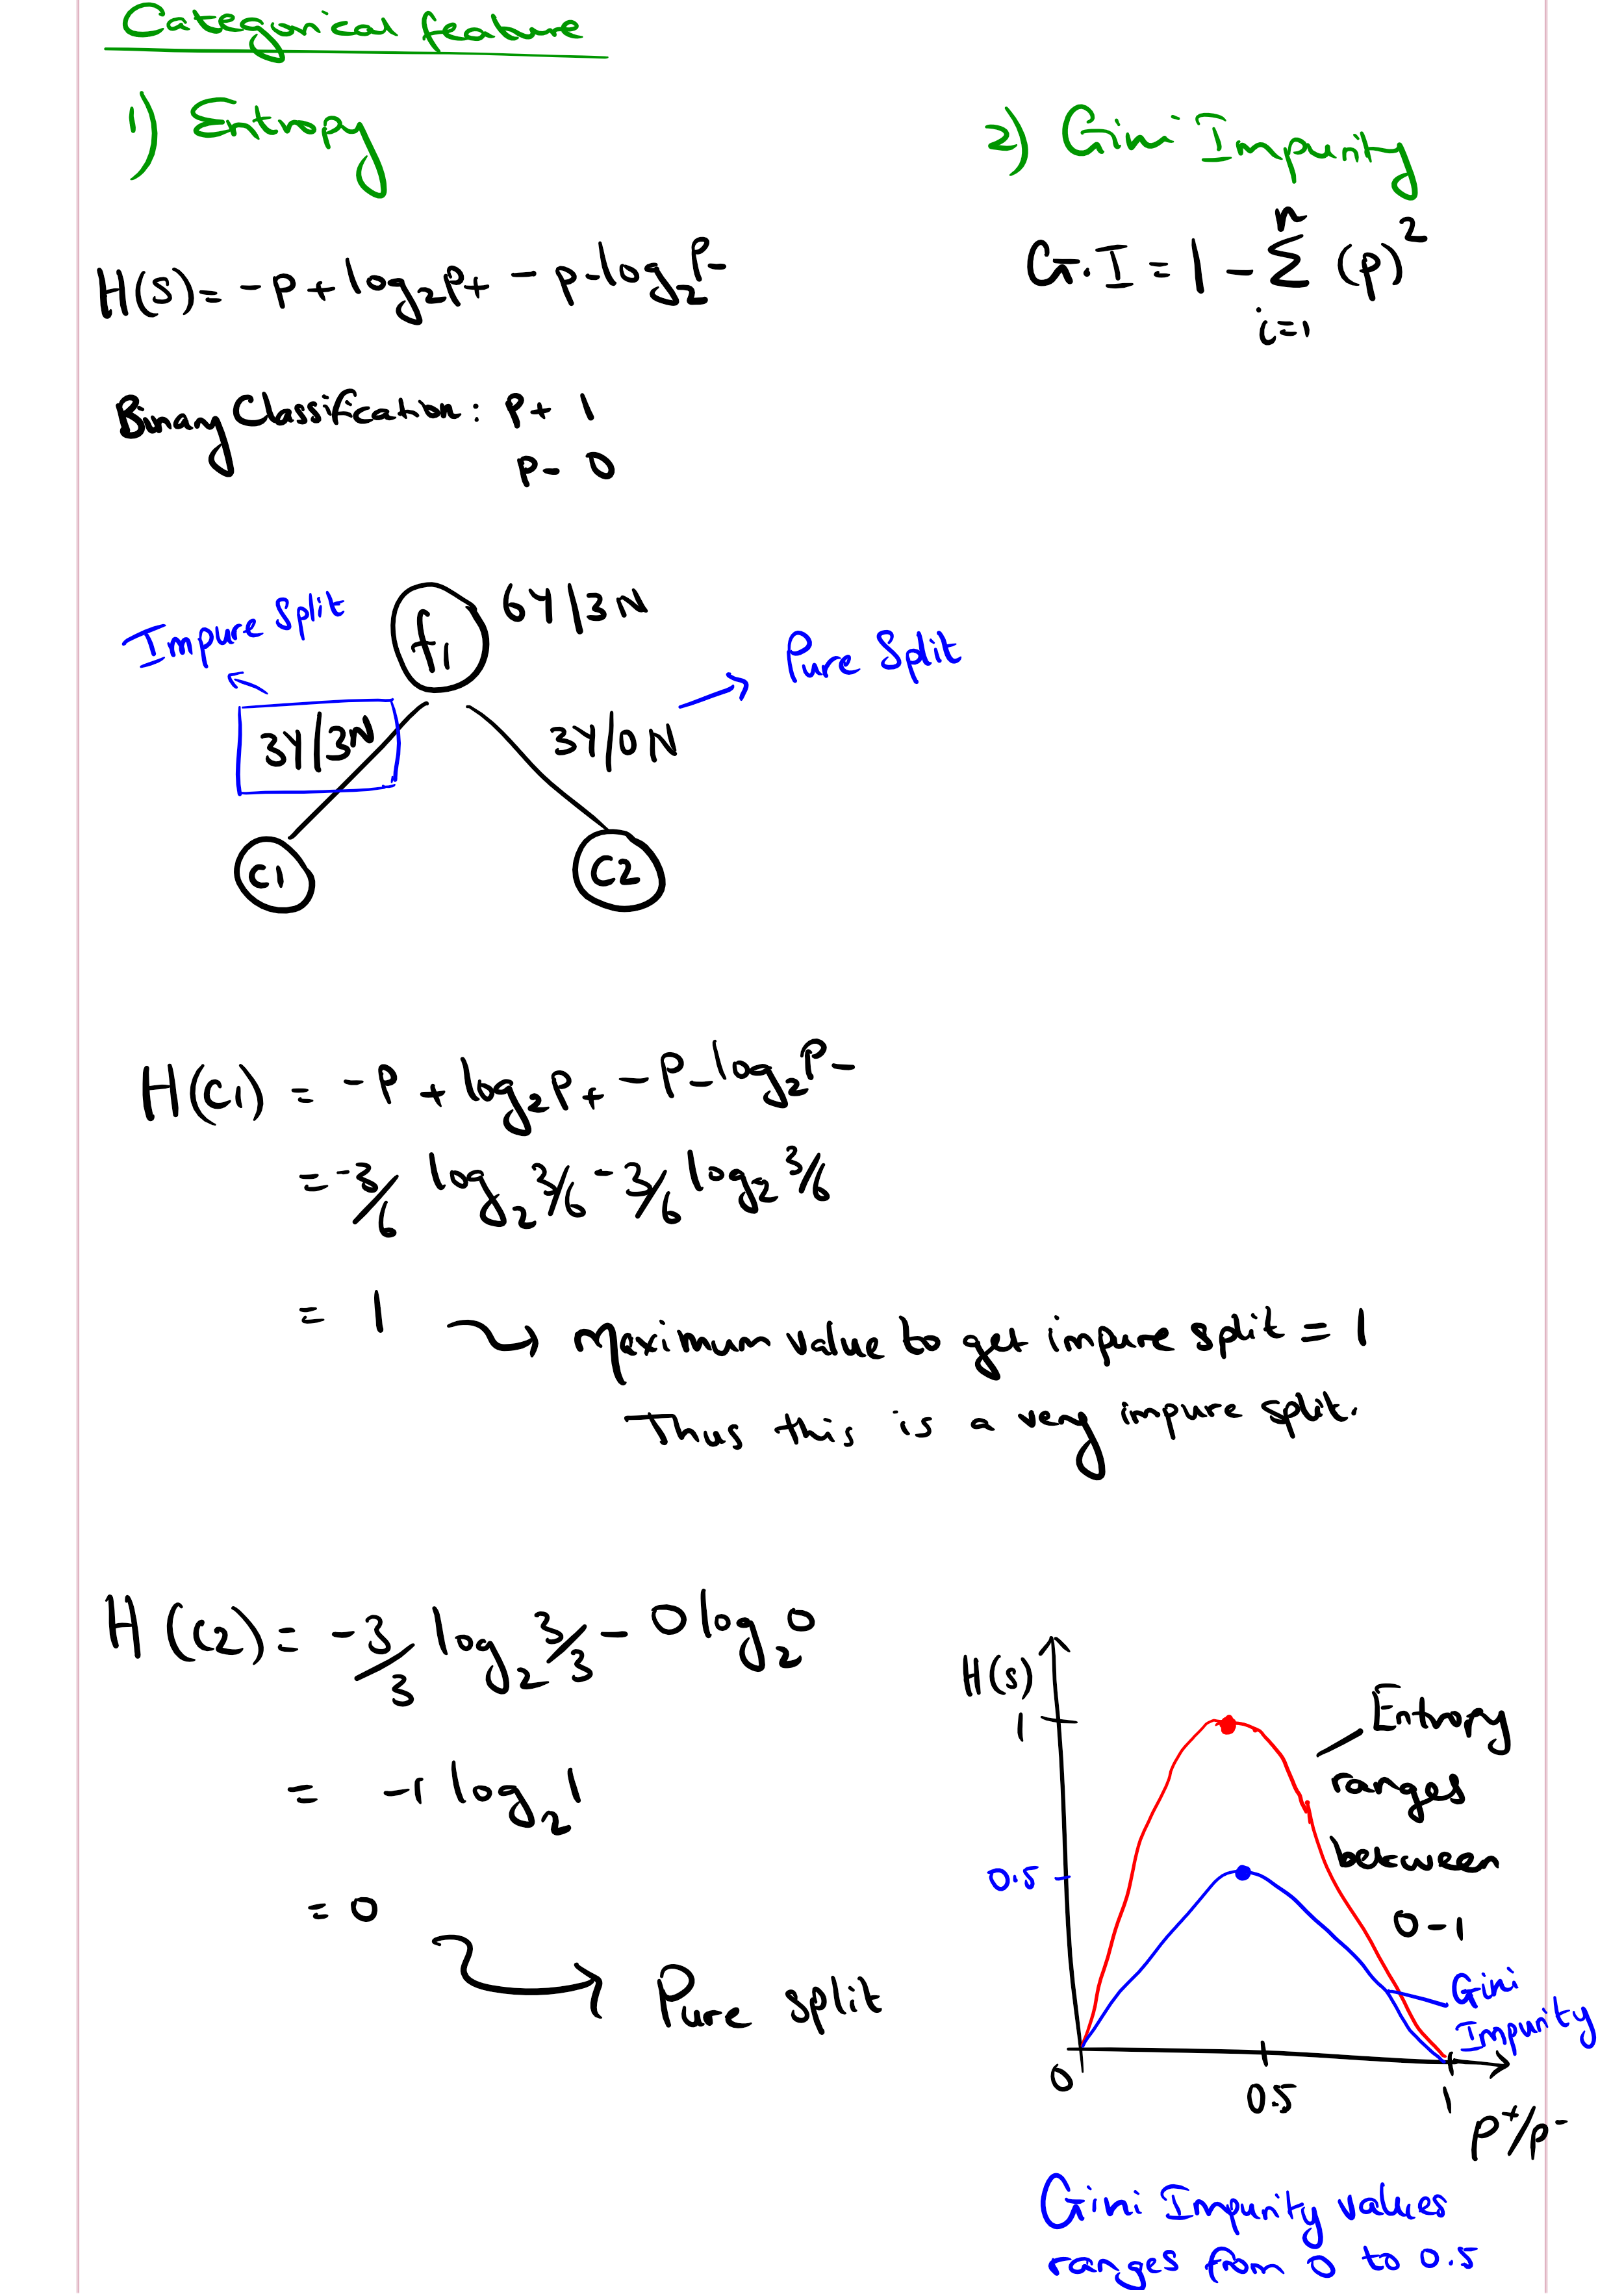 Categorical feature
1) Entropy
H(s) = -p+ log₂p+ - p- log₂p-
Binary Classification: p+ 1
p- 0
2) Gini Impurity
G.I = 1 - Σ (p)²
n
i=1
Impure Split
f1
6Y/3N
Pure Split
3Y/3N
3Y/0N
C1
C2
H(C1) = -p+ log₂p+ - p- log₂p-
= -3/6 log₂ 3/6 - 3/6 log₂ 3/6
= 1 → Maximum value to get impure split = 1
Thus this is a very impure split.
H(C2) = -3/3 log₂ 3/3 - 0 log₂ 0
= -1 log₂ 1
= 0
Pure split
H(s)
1
0.5
0
0.5
1
p+/p-
Entropy
ranges
between
0-1
Gini
Impurity
Gini Impurity values
ranges from 0 to 0.5